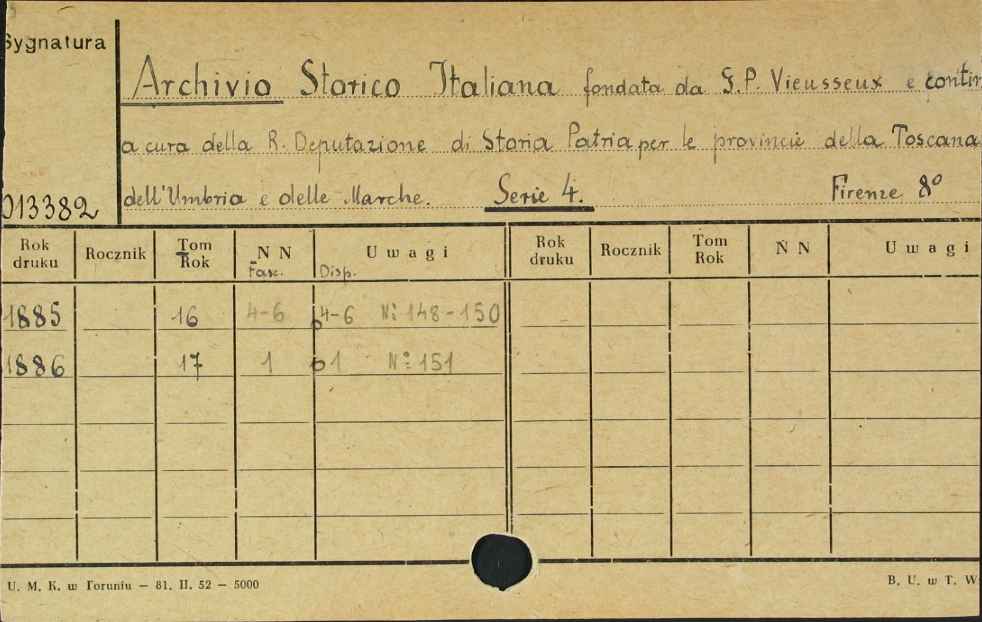 Sygnatura
Archivio Storico Italiana fondata da G.P. Vieusseux e contin
a cura della R. Deputazione di Storia Patria per le provincie della Toscana
dell'Umbria e delle Marche. Serie 4. Firenze 8°
013382
Rok druku Rocznik Tom Rok N N Fasc. Uwagi Disp. Rok druku Rocznik Tom Rok N N Uwagi
1885 16 4-6 4-6 N: 148-150
1886 17 1 1 N: 151
U. M. K. w Toruniu — 81. II. 52 — 5000 B. U. w T. W